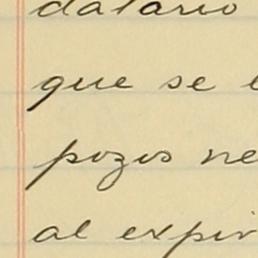 datario
que se
pozos ne
al expir